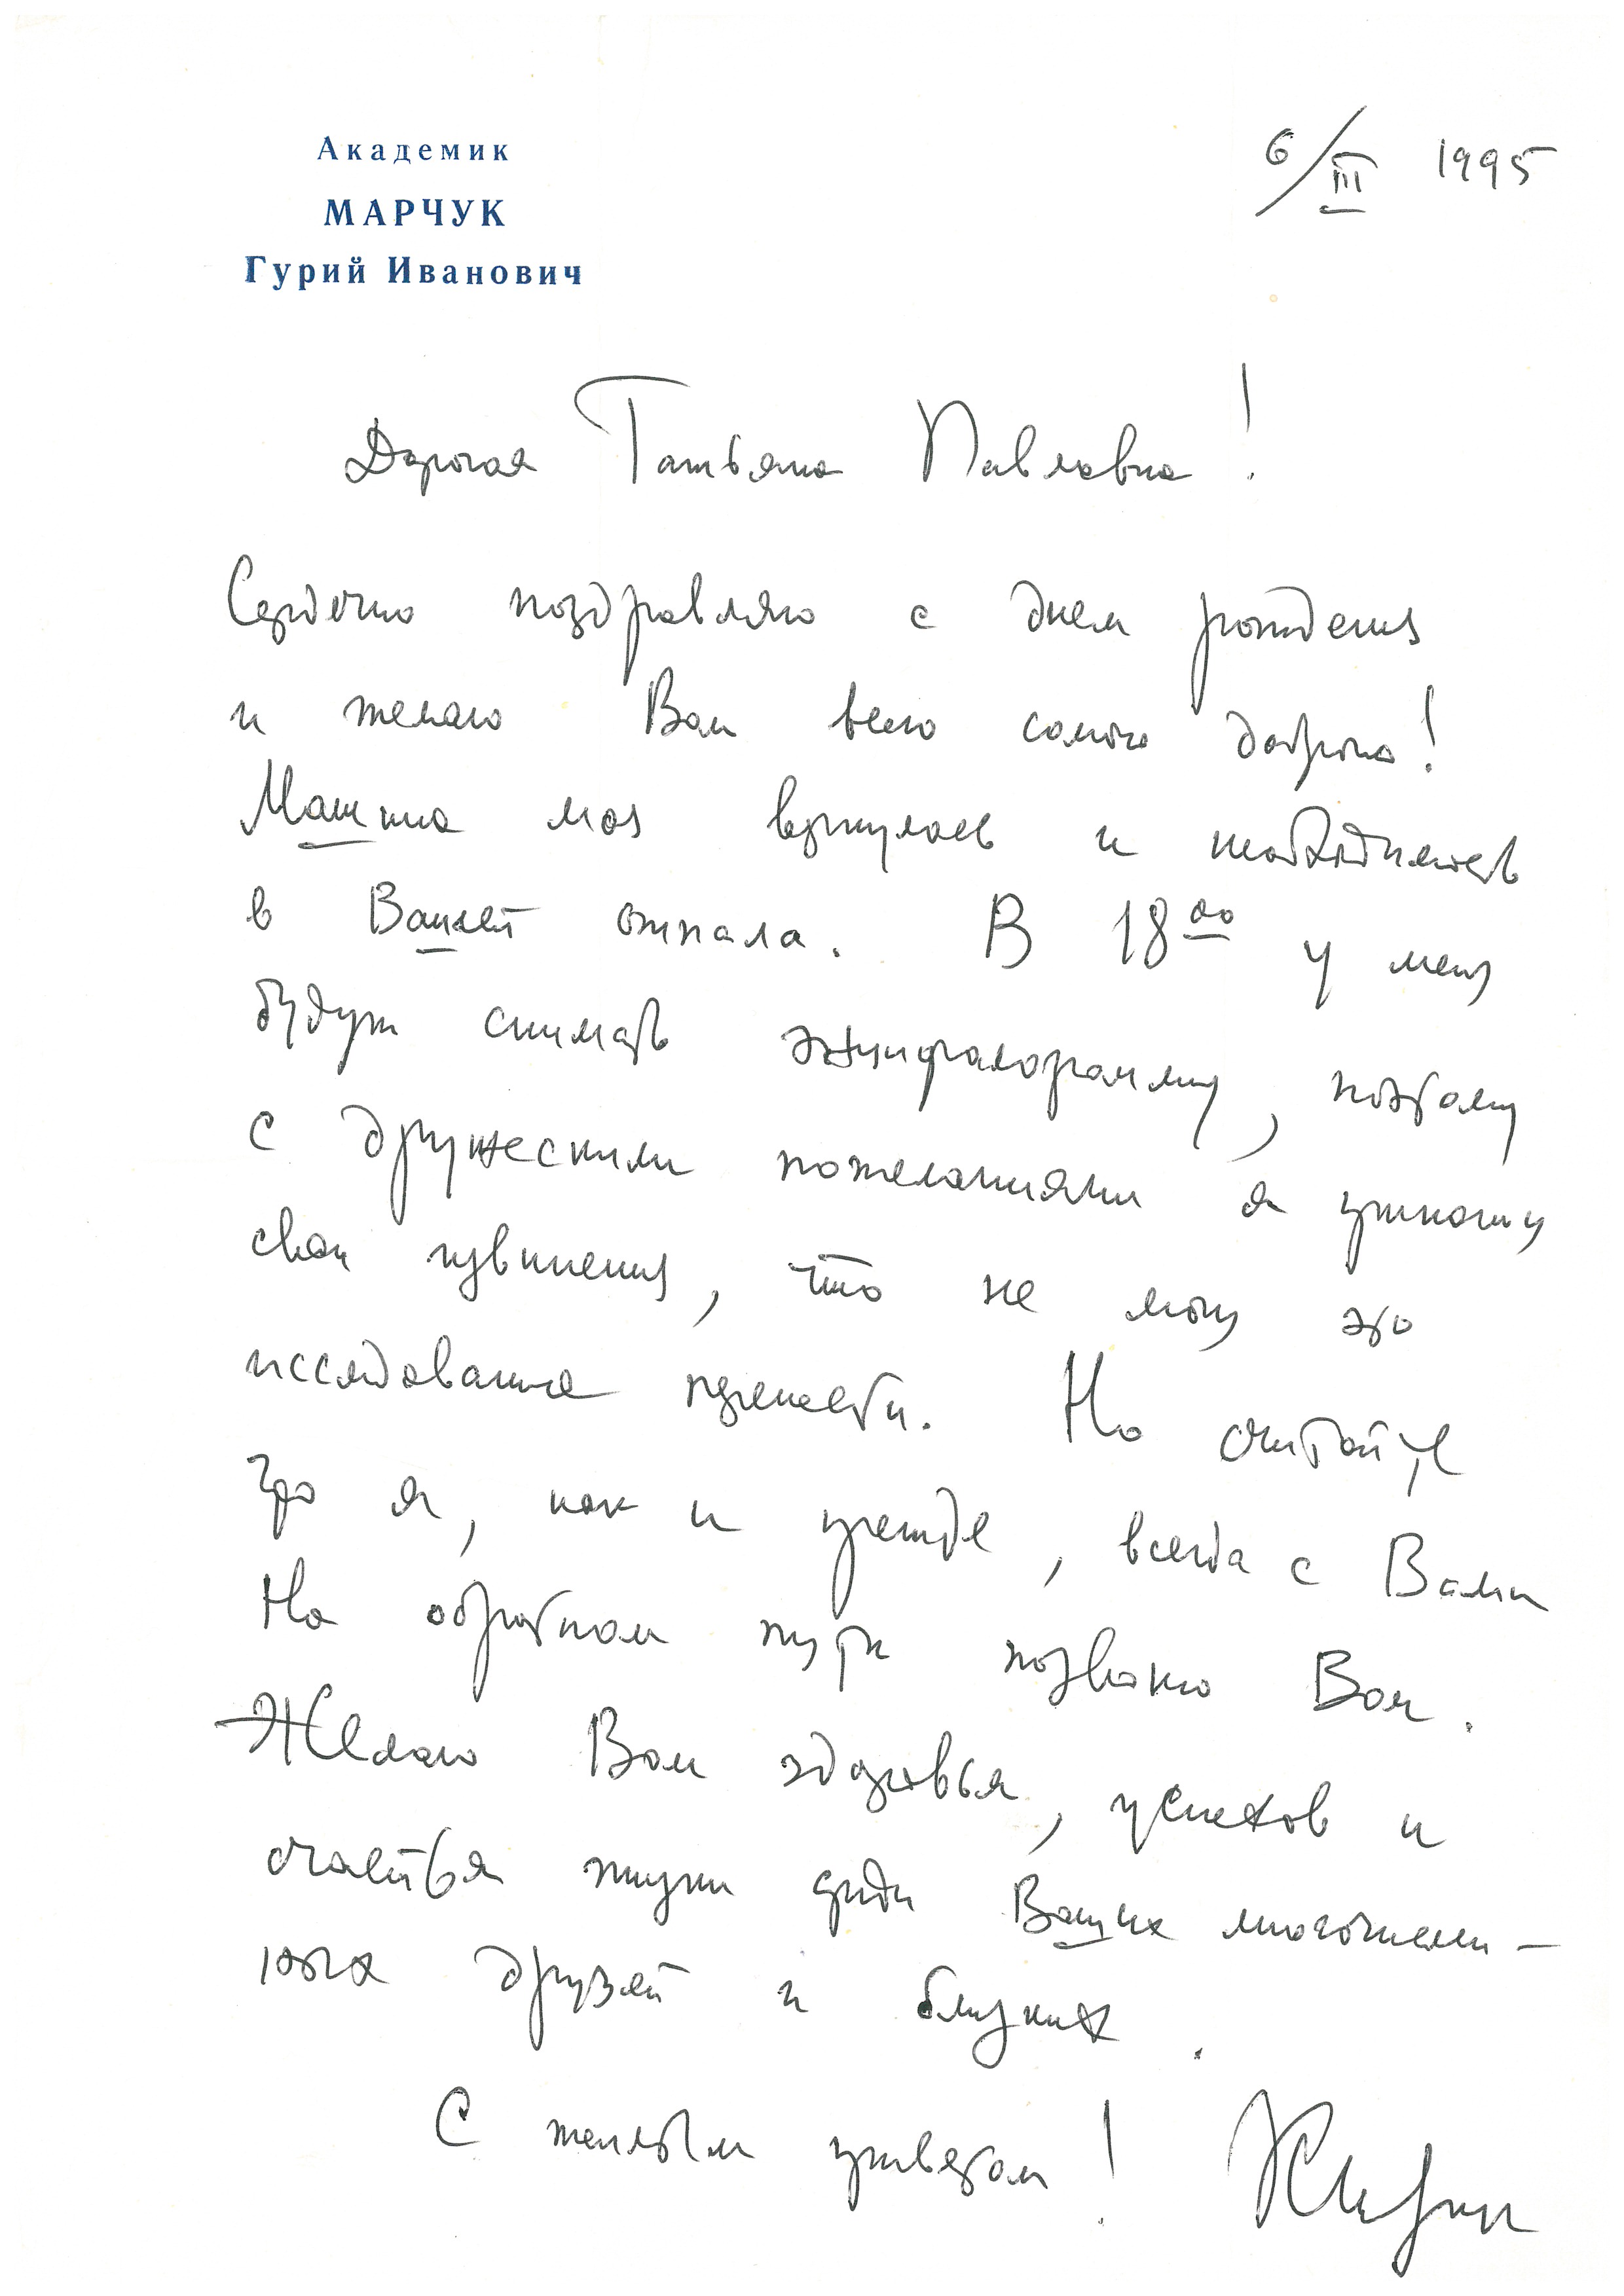 Академик
МАРЧУК
Гурий Иванович
6/III 1995
Дорогая Татьяна Павловна!
Сердечно поздравляю с днем рождения
и желаю Вам всего самого доброго!
Машина моя вернулась и необходимость
в Вашей отпала. В 18 00 у меня
будут снимать энцифалограмму, поэтому
с дружескими пожеланиями я приношу
свои извинения, что не могу это
исследование перенести. Но считайте
что я, как и прежде, всегда с Вами
На обратном пути позвоню Вам.
Желаю Вам здоровья, успехов и
счастья жизни среди Ваших многочислен-
ных друзей и близких.
С теплым приветом!